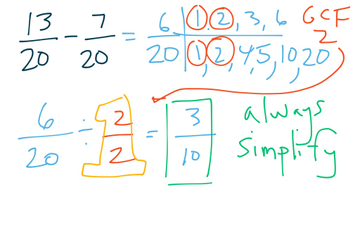 13/20 - 7/20 = 6/20 | 1, 2, 3, 6 GCF
1, 2, 4, 5, 10, 20 2
6/20 ÷ 2/2 = 3/10 always
simplify